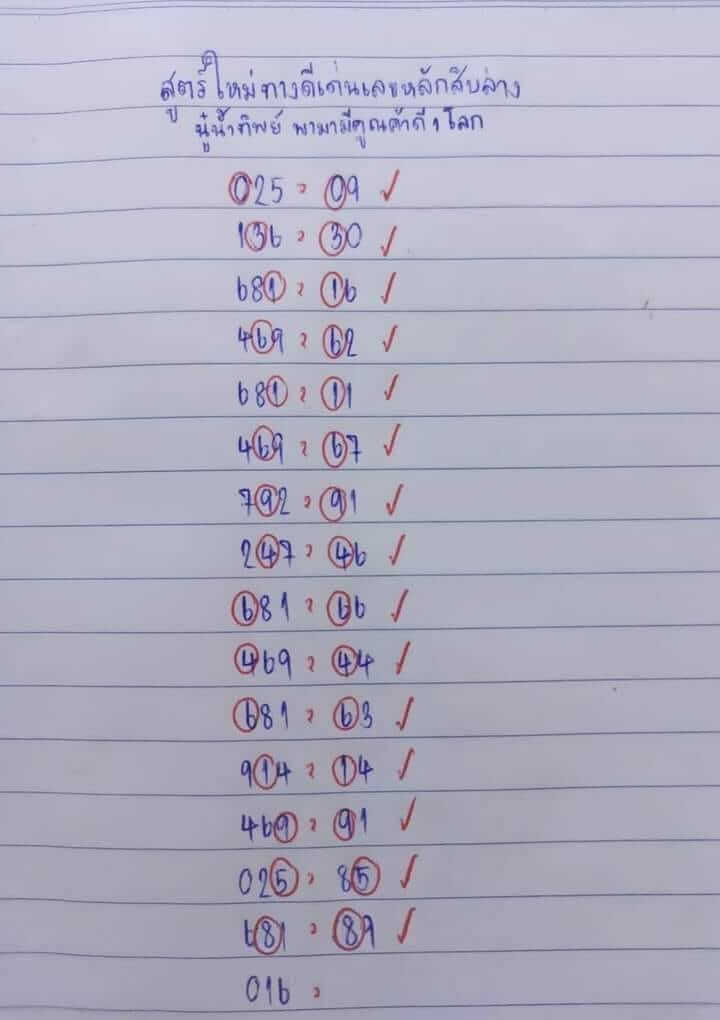 สูตรใหม่ทางดีเด่นเลขหลักสิบล่าง
ปู่น้ำทิพย์ พามามีคูณค้าดี 1 โลก
025 = 09 ✓
136 = 30 ✓
681 = 16 ✓
469 = 62 ✓
681 = 11 ✓
469 = 67 ✓
792 = 91 ✓
247 = 46 ✓
681 = 66 ✓
469 = 44 ✓
681 = 63 ✓
914 = 14 ✓
469 = 91 ✓
025 = 85 ✓
681 = 89 ✓
016 =